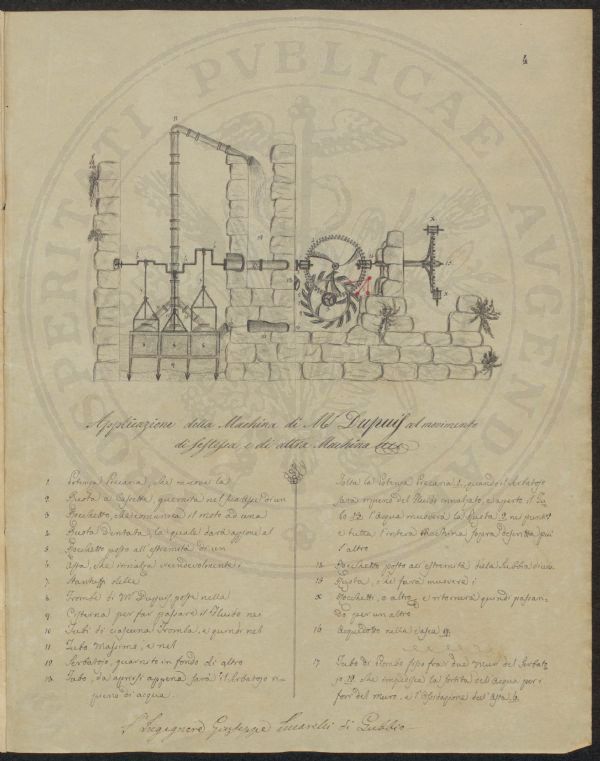 4
PROSPERITATI PVBLICAE AVGENDAE
Applicazione della Machina di Mr Dupuis al movimento
di e di altra Machina
1 Potenza Precaria, che moverà la
2 Ruota a Cassetta, guernita nel di un
3 Rocchetto, che comunica il moto ad una
4 Ruota Dentata, la quale darà azione al
5 Rocchetto posto all'estremità di un
6 Asta, che innalza vicendevolmente i
7 Stantuffi delle
8 Trombe di Mr Dupuis, poste nella
9 Cisterna per far passare il Fluido nei
10 Tubi di ciascuna Tromba, e quindi nel
11 Tubo Massimo, e nel
12 Serbatojo, guarnito in fondo di altro
13 Tubo, da aprirsi appena sarà il Serbatojo ri-
pieno di acqua.
Tolta la Potenza Precaria 1, quando il Serbatojo
sarà ripieno del Fluido innalzato, e aperto il Tu-
bo 13 l'acqua muoverà la Ruota 2 ne' punti
e tutta l'intera Machina sopra descritta, più
l'altro
14 Rocchetto posto all'estremità della
15 Ruota, che farà muovere i
X Rocchetti, o altro, e ritornerà quindi passan-
do per un altro
16 Acquedotto nella Cassa 9.
17 Tubo di Piombo fisso fra i due Muri del Serbato-
jo 12 che impedisce la sortita dell'acqua per i
fori del muro, e l' dell'Asta 6.
L'Ingegnere Giuseppe Lucarelli di Gubbio